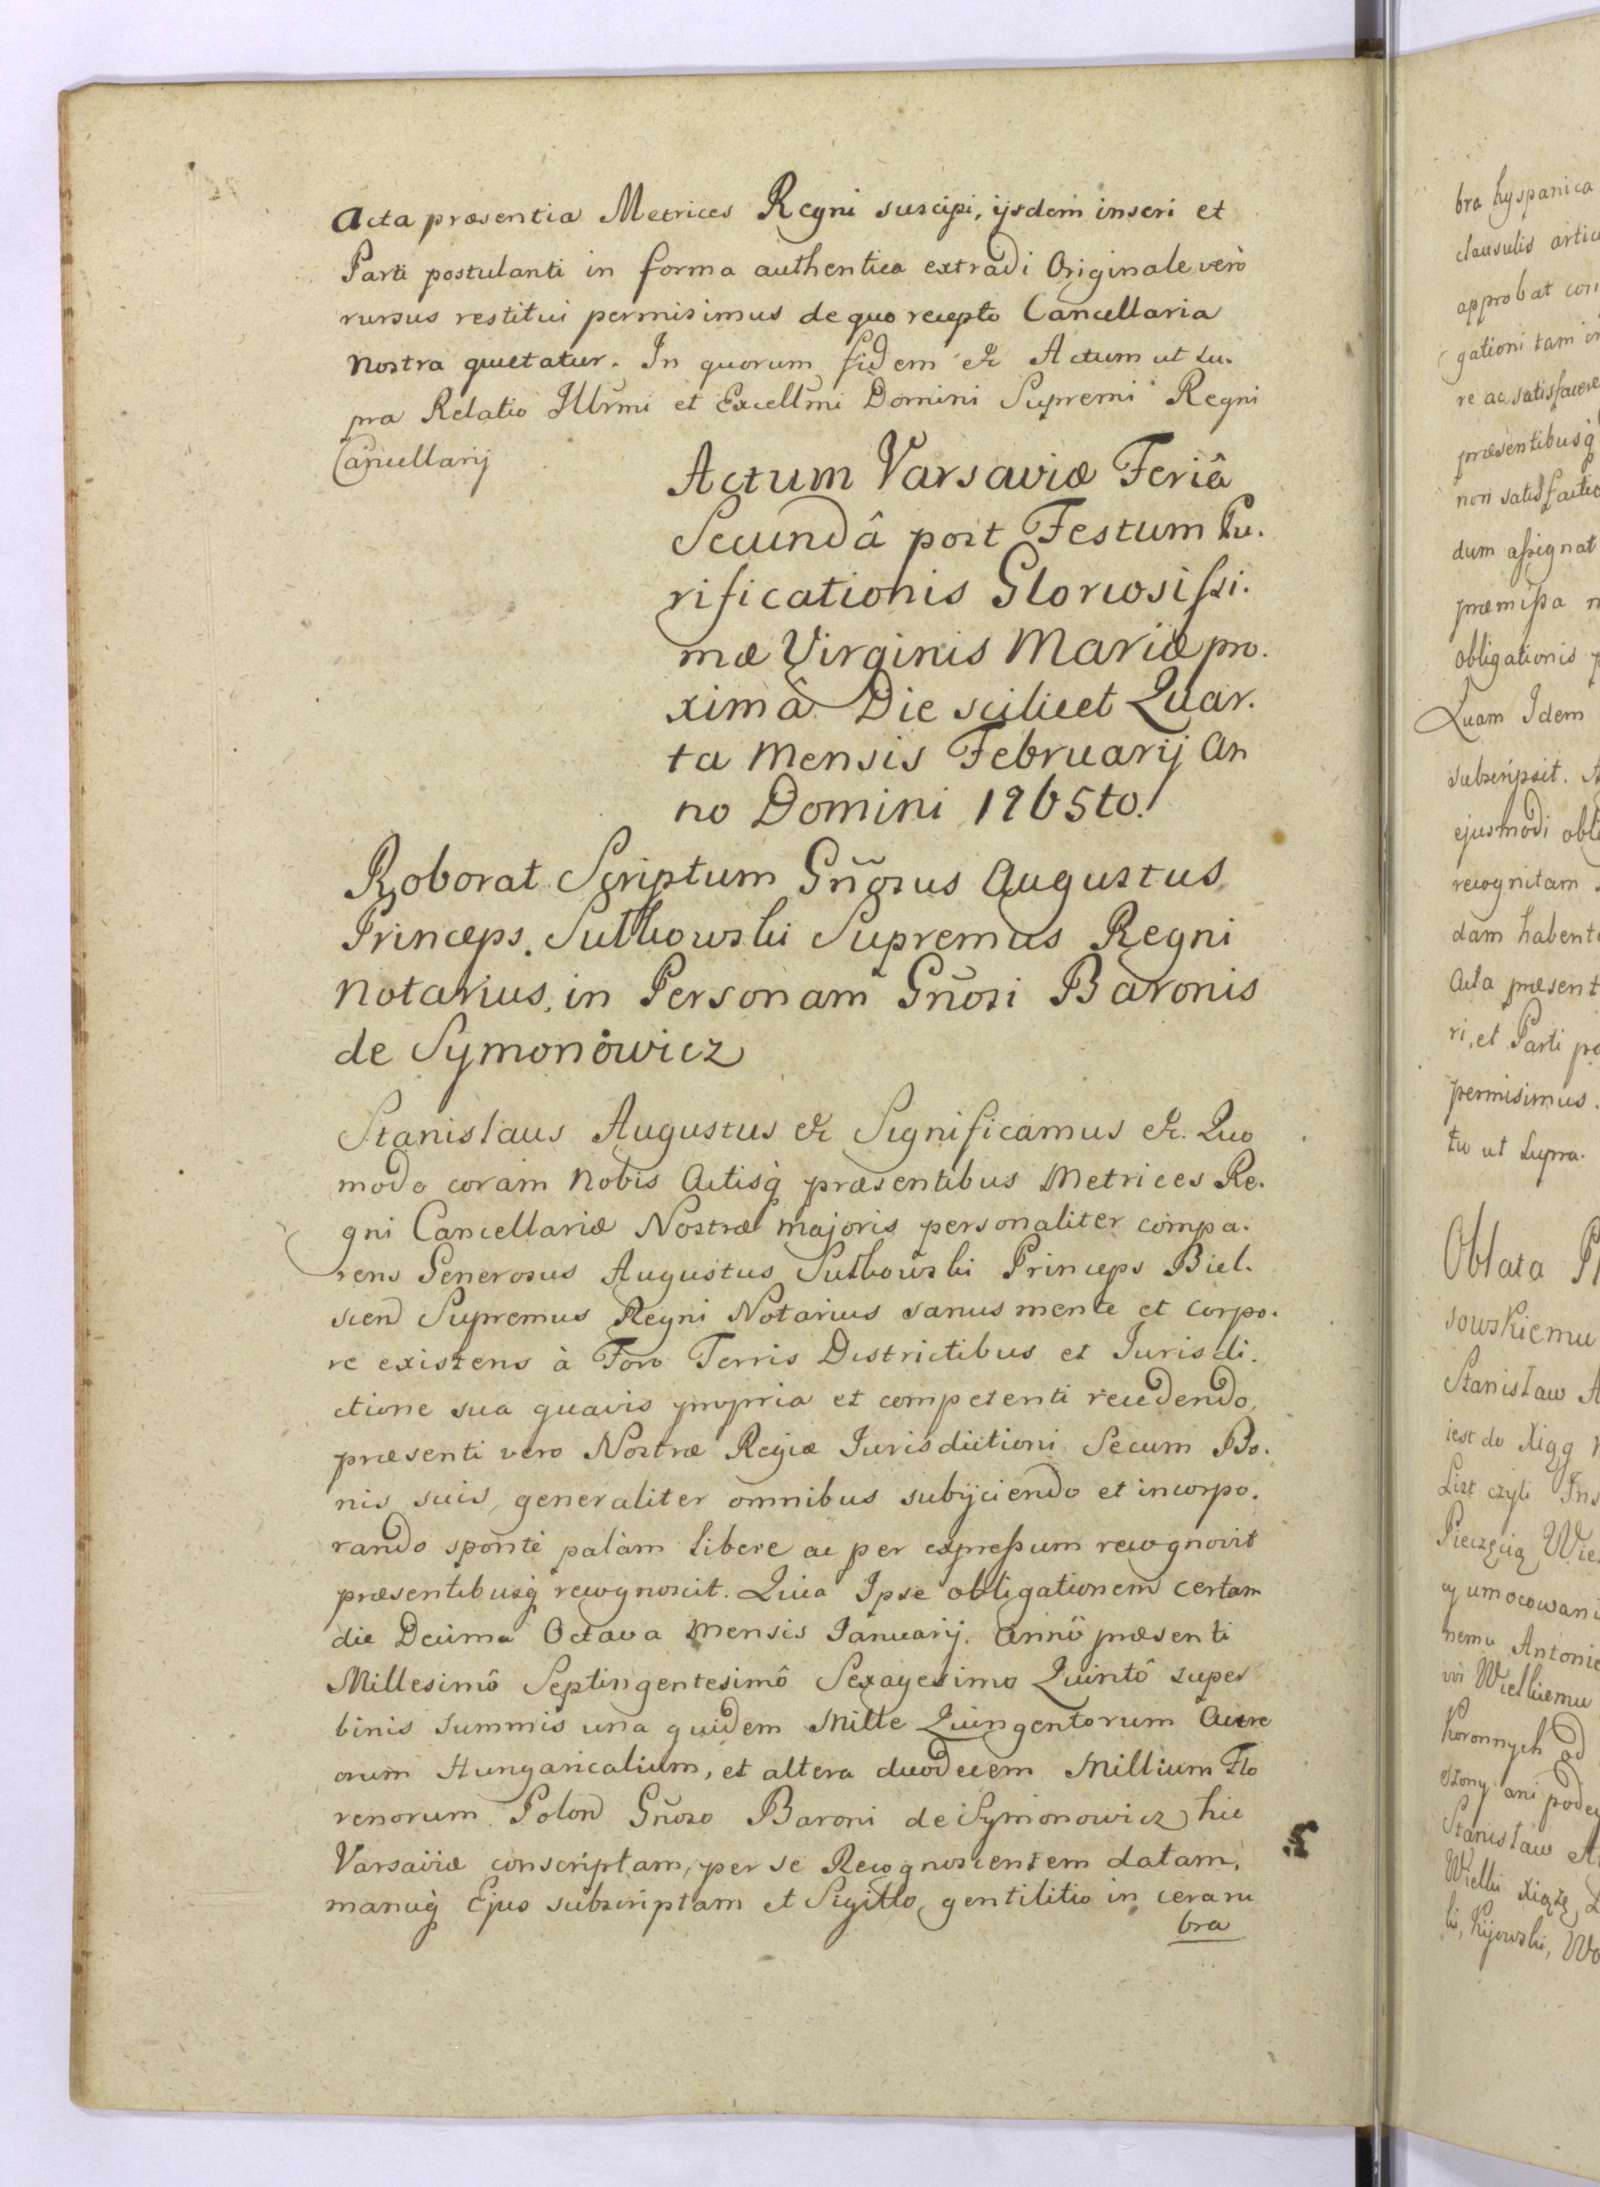 Acta præsentia Metrices Regni suscipi, ijsdem inseri et
Parti postulanti in forma authentica extradi Originale verò
rursus restitui permisimus de quo recepto Cancellaria
Nostra quietatur. In quorum fidem &c Actum ut su.
pra Relatio Illrmi et Excellmi Domini Supremi Regni
Cancellarij
Actum Varsaviæ Feriâ
Secundâ post Festum Pu.
rificationis Gloriosissi.
mæ Virginis Mariæ pro.
ximâ Die scilicet Quar.
ta Mensis Februarij An
no Domini 1765to.
Roborat Scriptum Gñosus Augustus
Princeps Sułkowski Supremus Regni
Notarius, in Personam Gñosi Baronis
de Symonowicz
Stanislaus Augustus &c Significamus &c. Quo
modo coram Nobis Actisq̀ præsentibus Metrices Re.
gni Cancellariæ Nostræ majoris personaliter compa.
rens Generosus Augustus Sułkowski Princeps Biel.
scen Supremus Regni Notarius sanus mente et corpo.
re existens à Foro Terris Districtibus et Jurisdi.
ctione sua quavis propria et competenti recedendo,
præsenti vero Nostræ Regiæ Jurisdictioni Secum Bo.
nis suis generaliter omnibus subijciendo et incorpo.
rando spontè palàm libere ac per expressum recognovit
præsentibusq̀ recognoscit. Quia Ipse obligationem certam
die Decima Octava Mensis Januarij. Annô præsenti
Millesimô Septingentesimô Sexagesimo Quintô super
binis summis una quidem Mille Quingentorum Aure
orum Hungaricalium, et altera duodecem Millium Flo
renorum Polon Gñoso Baroni de Symonowicz hic
Varsaviæ conscriptam, per se Recognoscentem datam,
manuq̀ Ejus subscriptam et Sigillo gentilitio in cera ru
bra
bra hyspanica
clausulis artic
approbat con
gationi tam in
re ac satisfacere
præsentibusq̀
non satisfactio
dum assignat
præmissa n
obligationis p
Quam Idem
subscripsit.
ejusmodi obli
recognitam
dam habent
Acta præsent
ri, et Parti po
permisimus.
tu ut supra.
Oblata Pl
sowskiemu
Stanisław A
iest do Xiąg
List czyli Ins
Pieczęcią Wie
cy umocowani
nemu Antonie
wi Wielkiemu
Koronnych ad
Stanisław A
Wielki Xiążę
ki, Kijowski, Wo